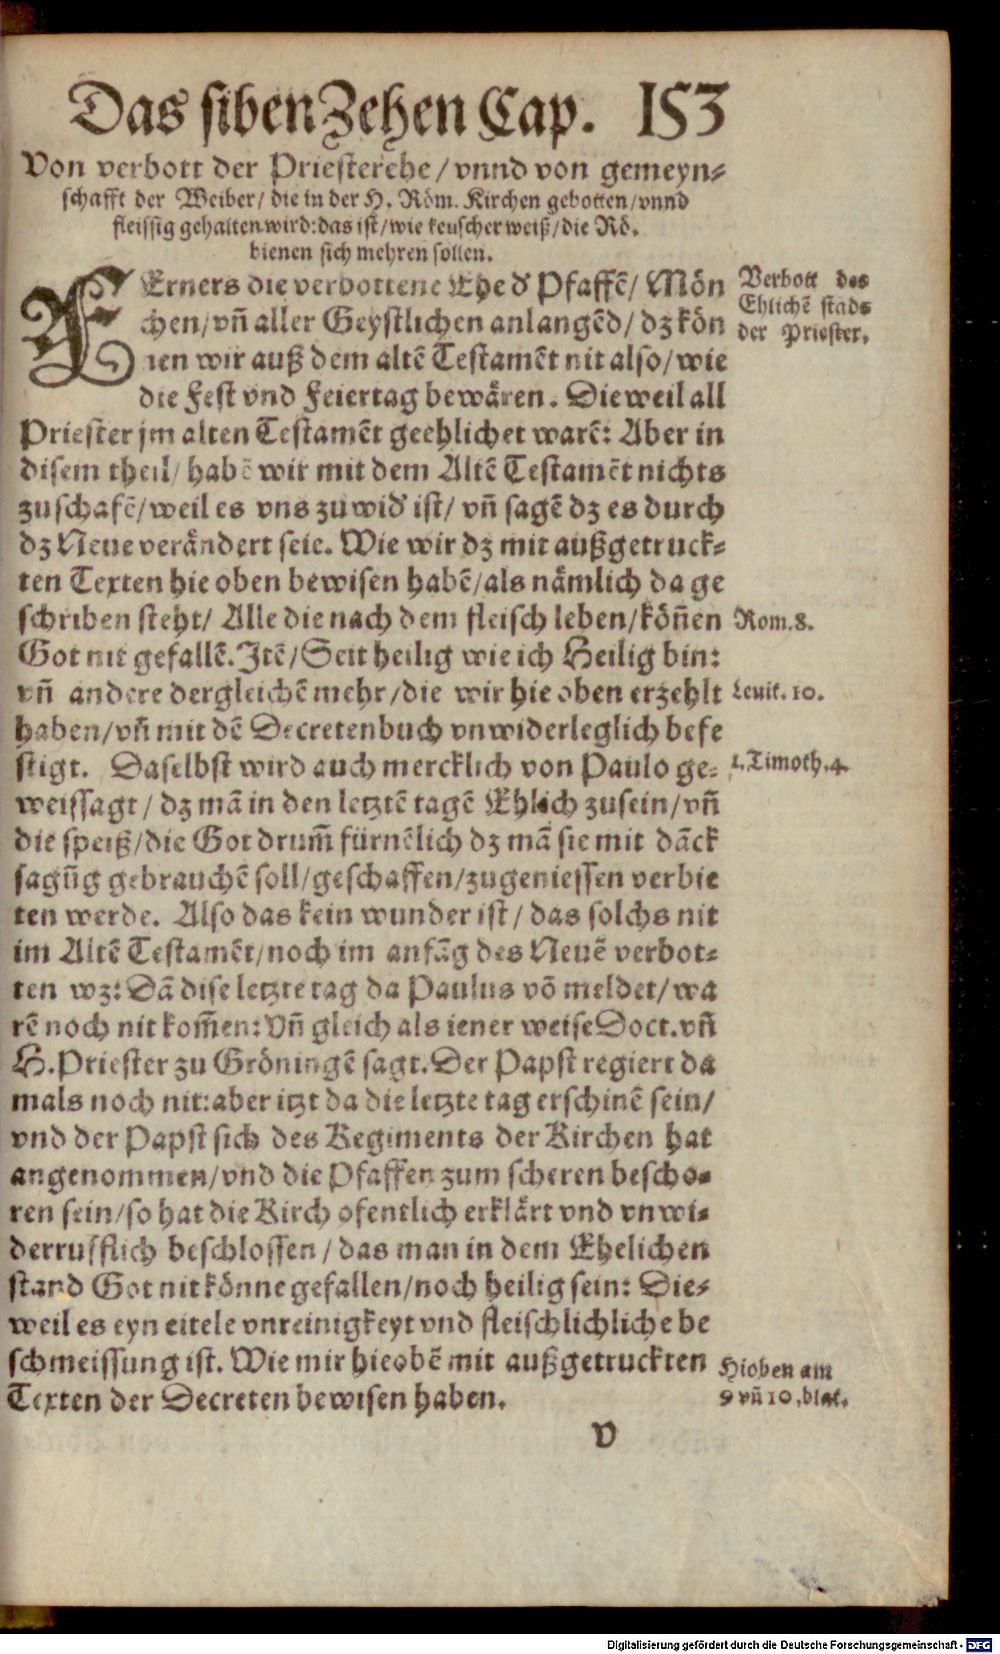 Das siben Zehen Cap. 153
Von verbott der Priesterehe/ vnnd von gemeyn⸗
schafft der Weiber/ die in der H. Röm. Kirchen gebotten/ vnnd
fleissig gehalten wird: das ist/ wie keuscher weiß/ die Rö.
bienen sich mehren sollen.
FErners die verbottene Ehe d' Pfaffẽ/ Mön
chen/ vñ aller Geystlichen anlangẽd/ dz kön
nen wir auß dem altẽ Testamẽt nit also/ wie
die Fest vnd Feiertag bewären. Die weil all
Priester jm alten Testamẽt geehlichet warẽ: Aber in
disem theil/ habẽ wir mit dem Altẽ Testamẽt nichts
zuschafẽ/ weil es vns zu wid' ist/ vñ sagẽ dz es durch
dz Neue verändert seie. Wie wir dz mit außgetruck⸗
ten Texten hie oben bewisen habẽ/ als nämlich da ge
schriben steht/ Alle die nach dem fleisch leben/ köñen
Got nit gefallẽ. Jtẽ/ Seit heilig wie ich Heilig bin:
vñ andere dergleichẽ mehr/ die wir hie oben erzehlt
haben/ vñ mit dẽ Decretenbuch vnwiderleglich befe
stigt. Daselbst wird auch mercklich von Paulo ge⸗
weissagt/ dz mã in den letztẽ tagẽ Ehlich zusein/ vñ
die speiß/ die Got drum̃ fürnẽlich dz mã sie mit dãck
sagũg gebrauchẽ soll/ geschaffen/ zugeniessen verbie
ten werde. Also das kein wunder ist/ das solchs nit
im Altẽ Testamẽt/ noch im anfãg des Neuẽ verbot⸗
ten wz: Dã dise letzte tag da Paulus võ meldet/ wa
rẽ noch nit kom̃en: Vñ gleich als iener weise Doct. vñ
H. Priester zu Gröningẽ sagt. Der Papst regiert da
mals noch nit: aber itzt da die letzte tag erschinẽ sein/
vnd der Papst sich des Regiments der Kirchen hat
angenommen/ vnd die Pfaffen zum scheren bescho⸗
ren sein/ so hat die Kirch ofentlich erklärt vnd vnwi⸗
derrufflich beschlossen/ das man in dem Ehelichen
stand Got nit könne gefallen/ noch heilig sein: Die⸗
weil es eyn eitele vnreinigkeyt vnd fleischlichliche be
schmeissung ist. Wie mir hieobẽ mit außgetruckten
Texten der Decreten bewisen haben.
V
Verbott des
Ehlichẽ stãds
der Priester.
Rom. 8.
Leuit. 10.
1. Timoth. 4.
Hioben am
9 vñ 10. blat.
Digitalisierung gefördert durch die Deutsche Forschungsgemeinschaft - DFG